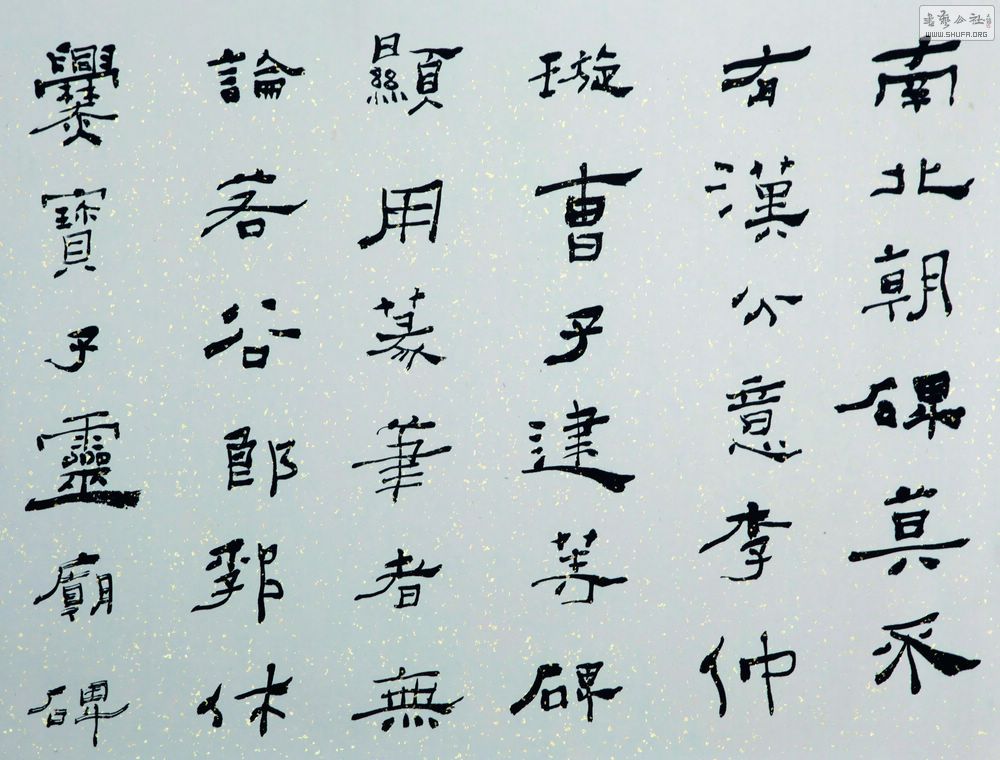 南北朝碑莫不
有漢分意李仲
璇曹子建等碑
顯用篆筆者無
論若谷郎郛休
爨寶子靈廟碑
書藝公社
WWW.SHUFA.ORG